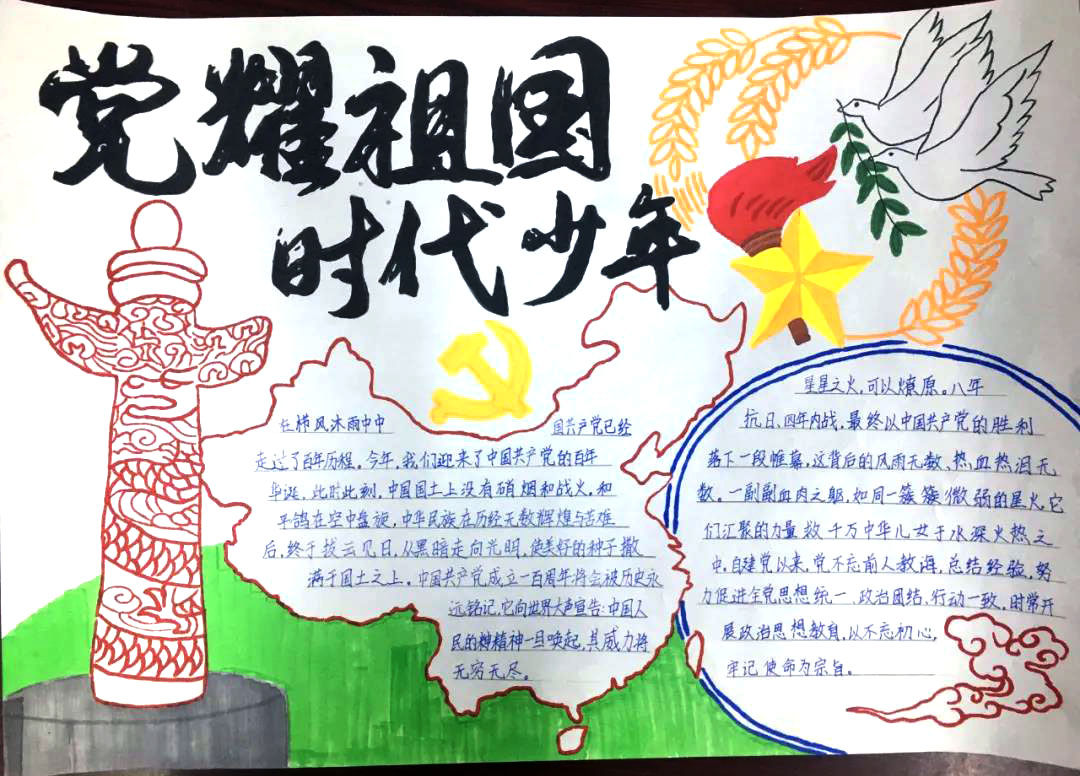 党耀祖国
时代少年
在栉风沐雨中中国共产党已经
走过了百年历程。今年,我们迎来了中国共产党的百年
华诞,此时此刻,中国国土上没有硝烟和战火,和
平鸽在空中盘旋,中华民族在历经无数辉煌与苦难
后,终于拨云见日,从黑暗走向光明,使美好的种子撒
满于国土之上。中国共产党成立一百周年将会被历史永
远铭记,它向世界大声宣告:中国人
民的精神一旦唤起,其威力将
无穷无尽。
星星之火,可以燎原。八年
抗日、四年内战,最终以中国共产党的胜利
落下一段帷幕,这背后的风雨无数、热血热泪无
数。一副副血肉之躯,如同一簇簇微弱的星火,它
们汇聚的力量救千万中华儿女于水深火热之
中,自建党以来,党不忘前人教诲,总结经验,努
力促进全党思想统一、政治团结、行动一致,时常开
展政治思想教育,以不忘初心,
牢记使命为宗旨。